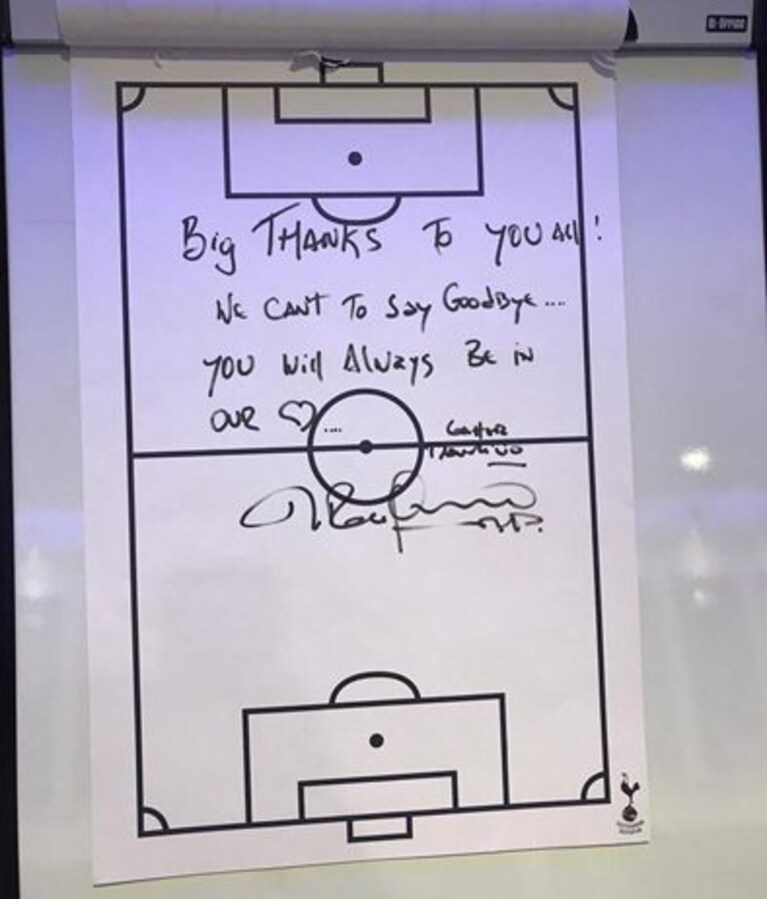 Big THANKS To YOU All!
WE CANT To Say GoodBye....
YOU will Always BE in
OUR ♡....